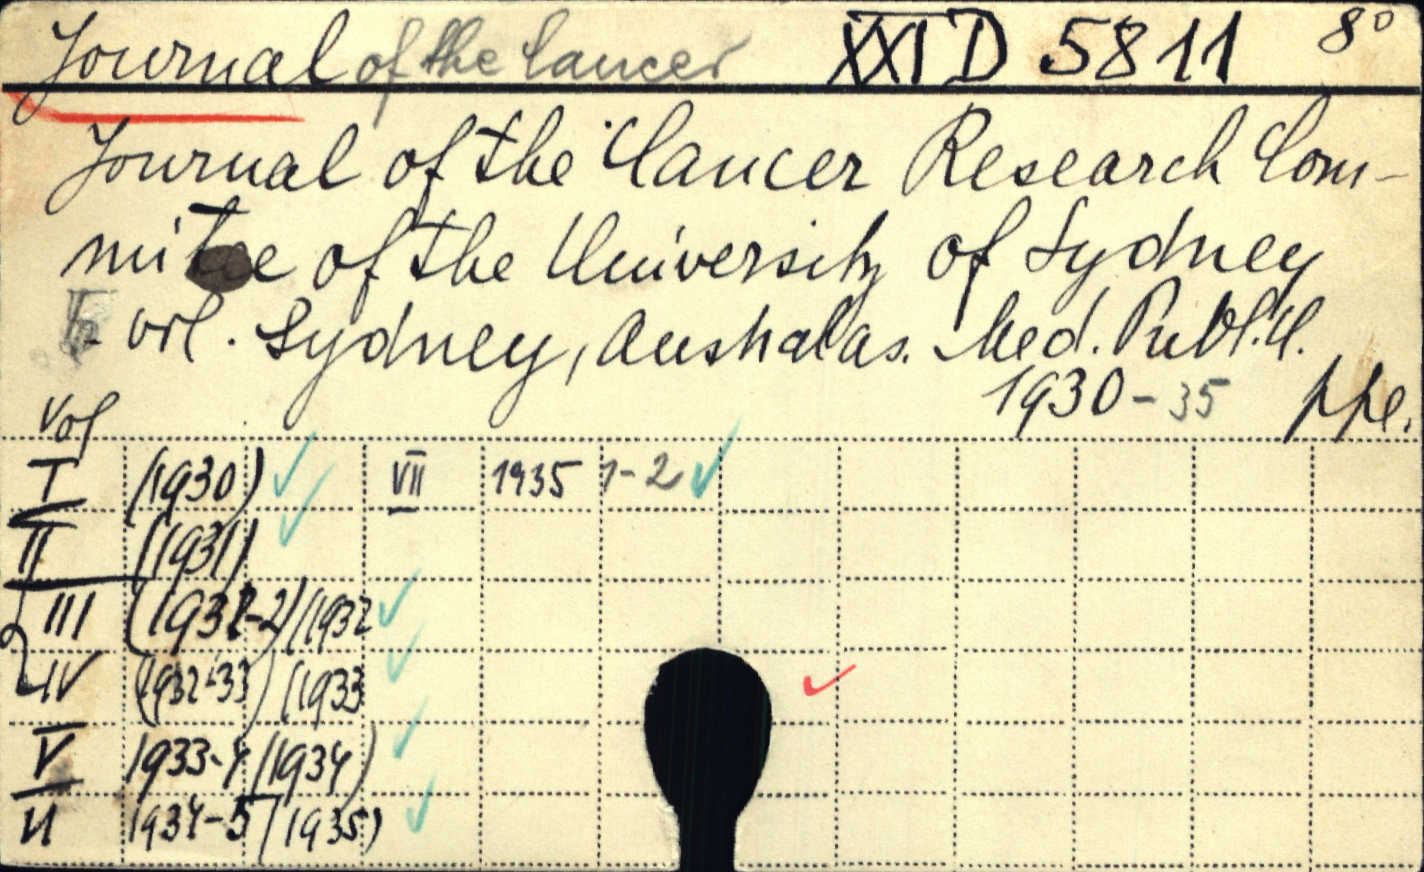 Journal of the Cancer XXI D 5811 8°
Journal of the Cancer Research Com-
mitee of the University of Sydney
vol. Sydney, Australas. Med. Publ. U.
1930-35 ppe.
vol
I (1930) VII 1935 1-2
II (1931)
III (1931-2) (1932
IV (1932-33) (1933
V 1933-4 (1934)
VI 1934-5 (1935)